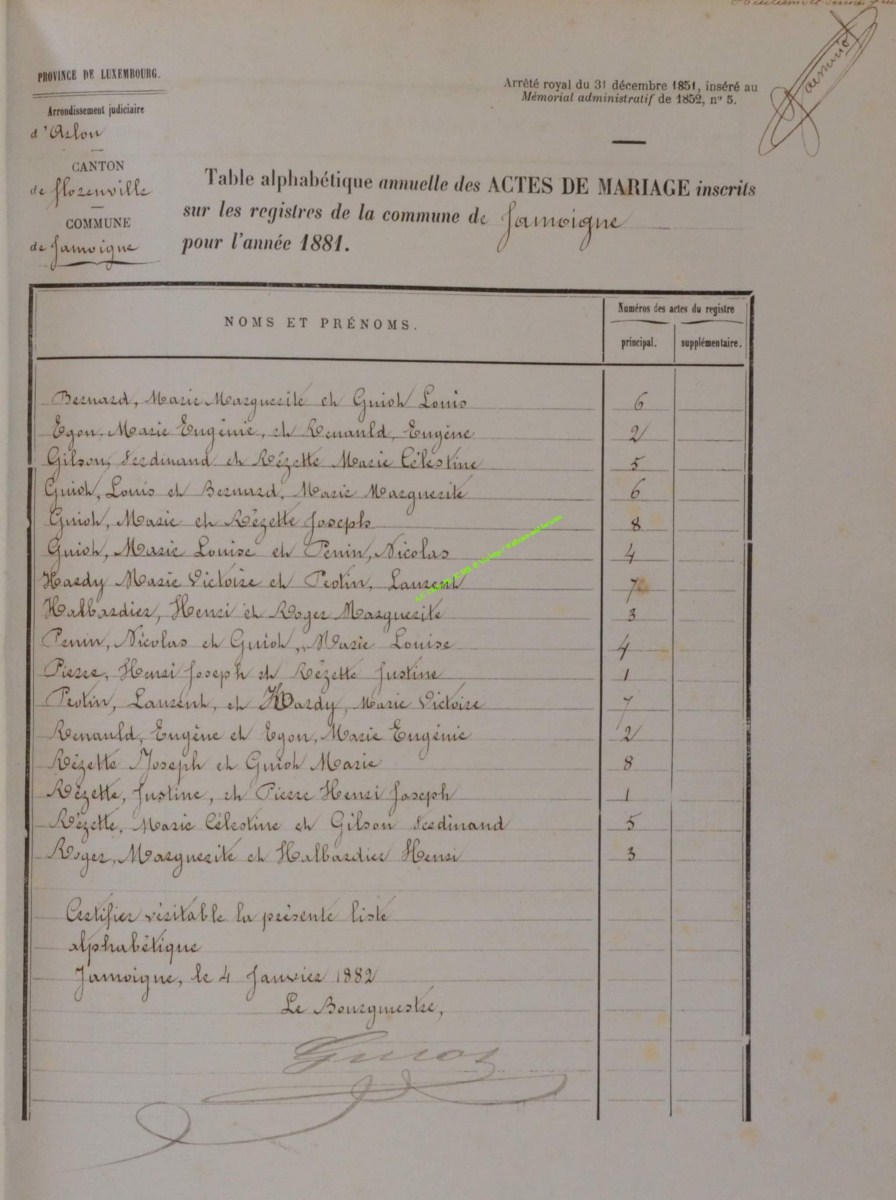 PROVINCE DE LUXEMBOURG.
Arrondissement judiciaire
d'Arlon
CANTON
de Florenville
COMMUNE
de Jamoigne
Arrêté royal du 31 décembre 1851, inséré au
Mémorial administratif de 1852, n° 5.
Table alphabétique annuelle des ACTES DE MARIAGE inscrits
sur les registres de la commune de Jamoigne
pour l'année 1881.
NOMS ET PRÉNOMS.
Numéros des actes du registre
principal. supplémentaire.
Bernard, Marie Marguerite et Guiot Louis 6
Egon, Marie Eugénie, et Renauld, Eugène 2
Gilson, Ferdinand et Rézette Marie Célestine 5
Guiot, Louis et Bernard, Marie Marguerite 6
Guiot, Marie et Rézette Joseph 8
Guiot, Marie Louise et Penin, Nicolas 4
Hardy Marie Victoire et Protin, Laurent 7
Halbardier, Henri et Roger Marguerite 3
Penin, Nicolas et Guiot, Marie Louise 4
Pierre, Henri Joseph et Rézette Justine 1
Protin, Laurent, et Hardy, Marie Victoire 7
Renauld, Eugène et Egon, Marie Eugénie 2
Rézette Joseph et Guiot Marie 8
Rézette, Justine, et Pierre Henri Joseph 1
Rézette, Marie Célestine et Gilson Ferdinand 5
Roger, Marguerite et Halbardier Henri 3
Certifier véritable la présente liste
alphabétique
Jamoigne, le 4 Janvier 1882
Le Bourgmestre,